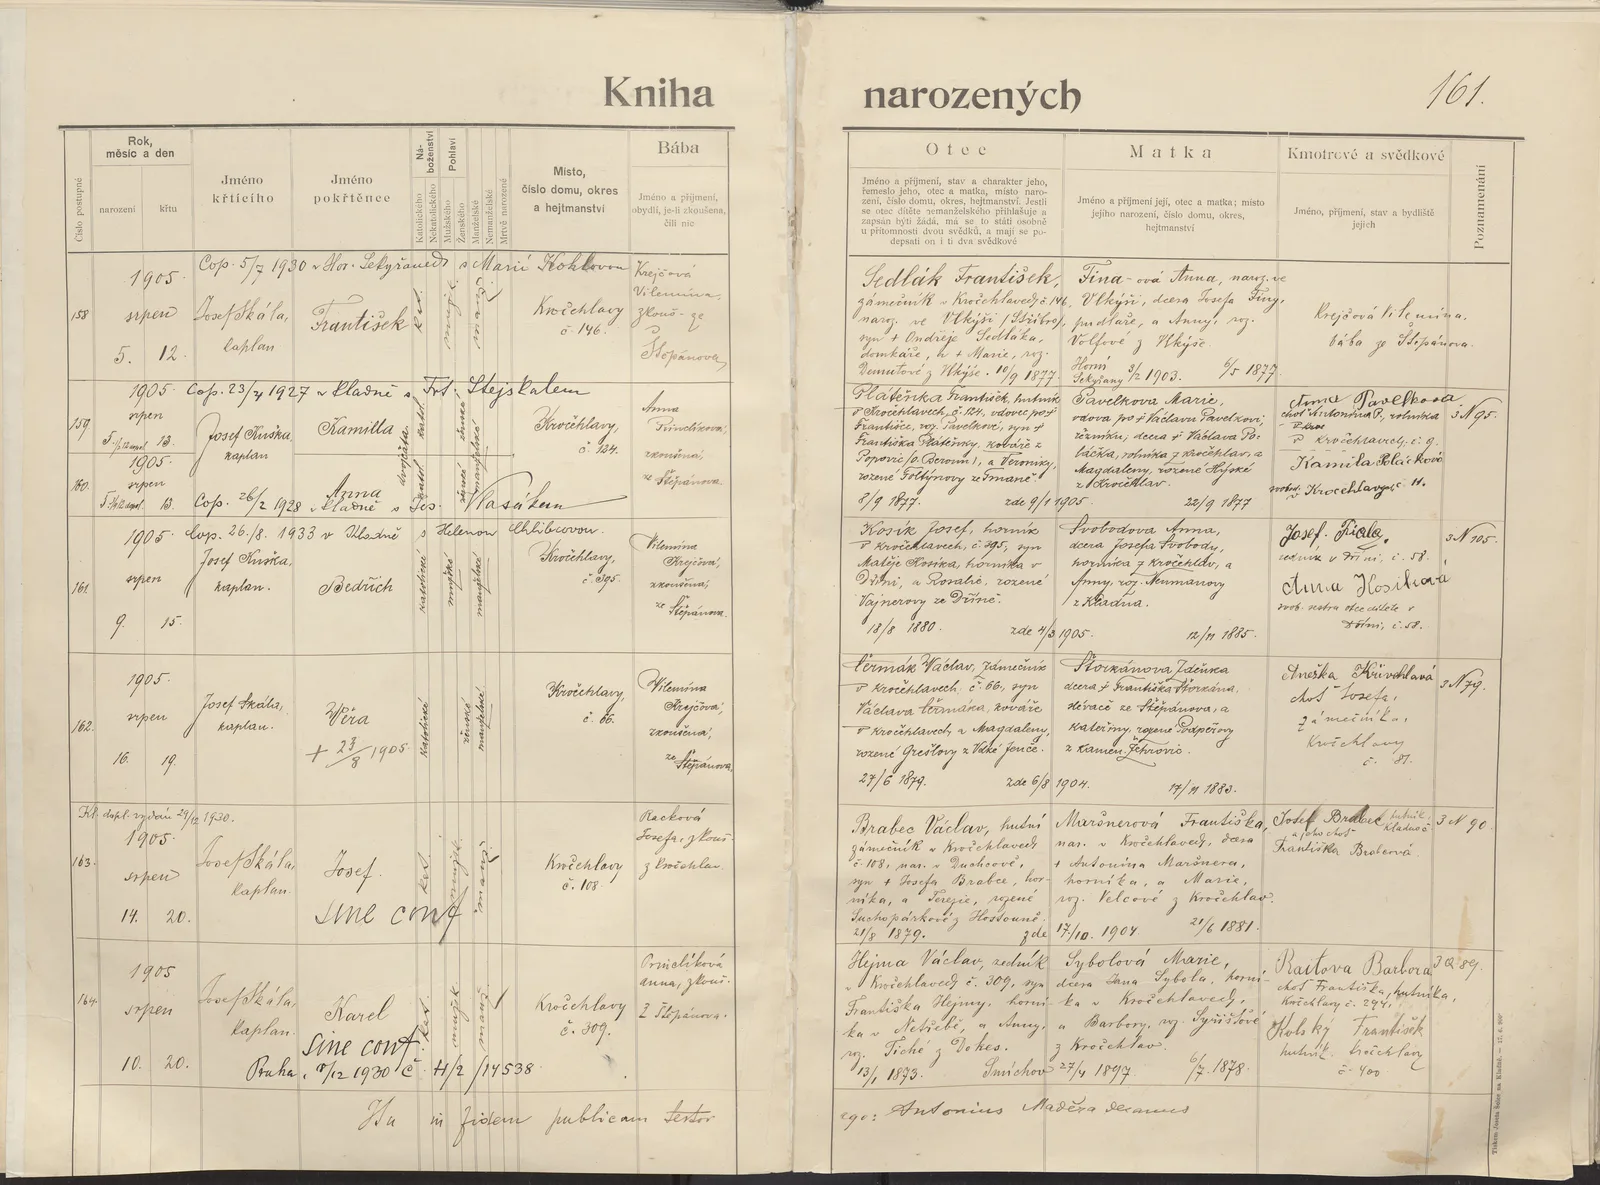 Kniha narozených
161.
Číslo postupné
Rok, měsíc a den
narození
křtu
Jméno křtícího
Jméno pokřtěnce
Náboženství
Katolického
Nekatolického
Pohlaví
Mužského
Ženského
Manželské
Nemanželské
Mrtvě narozené
Místo,
číslo domu, okres
a hejtmanství
Bába
Jméno a příjmení,
obydlí, je-li zkoušena,
čili nic
Otec
Jméno a příjmení, stav a charakter jeho,
řemeslo jeho, otec a matka, místo naro-
zení, číslo domu, okres, hejtmanství. Jestli
se otec dítěte nemanželského přihlašuje a
zapsán býti žádá, má se to státi osobně
u přítomnosti dvou svědků, a mají se po-
depsati on i ti dva svědkové
Matka
Jméno a příjmení její, otec a matka; místo
jejího narození, číslo domu, okres,
hejtmanství
Kmotrové a svědkové
Jméno, příjmení, stav a bydliště
jejich
Poznamenání
Cop. 5/7 1930 v Hor. Sekyřanech s Marií
158
1905.
srpen
5. 12.
Josef Skála,
kaplan
František
kat.
mužs.
manž.
Kročehlavy
č. 146.
Krejčová
Vilemína,
zkouš. ze
Štěpánova
Sedlák František,
zámečník v Kročehlavech č. 146,
naroz. ve Vlkýši (Stříbro),
syn + Ondřeje Sedláka,
domkáře, a + Marie, roz.
Demutové z Vlkýše. 10/9 1877.
Fina-ová Anna, naroz. ve
Vlkýši, dcera Josefa Finy,
pudláře, a Anny, roz.
Volfové z Vlkýše.
Horní Sekyřany 3/2 1903. 6/5 1877.
Krejčová Vilemína,
bába ze Štěpánova.
Cop. 23/4 1927 v Kladně s Frt. Stejskalem
159
1905.
srpen
13.
Josef Kuška,
kaplan
Kamilla
dvojčata
katol.
ženské
manželské
Kročehlavy,
č. 124.
Anna
zkoušena,
ze Štěpánova
160.
1905.
srpen
13.
Anna
Cop. 26/2 1928 v Kladně s Jos. Vlasákem
Plátěnka František, hutník
v Kročehlavech, č. 124, vdovec po +
Františce, roz. Pavelkové, syn +
Františka Plátěnky, kováře z
Popovic (o. Beroun), a Veroniky,
rozené Foltýnovy ze Tmaně.
8/9 1877. zde 9/1 1905. 22/9 1877
Pavelkova Marie,
vdova po + Václavu Pavelkovi,
řezníku, dcera + Václava Po-
láčka, rolníka z Kročehlav, a
Magdaleny, rozené Hýské
z Kročehlav.
Anna Pavelkova
choť Antonína P., rolníka
v Kročehlavech. č. 9.
Kamila Poláčková
svobod. v Kročehlavech č. 11.
3 N 95.
Cop. 26./8. 1933 v Kladně s Helenou Chlibcovou.
161.
1905.
srpen
9. 15.
Josef Kuška,
kaplan.
Bedřich
katolické
mužské
manželské
Kročehlavy,
č. 395.
Vilemína
Krejčová,
zkoušena,
ze Štěpánova.
Kosík Josef, horník
v Kročehlavech, č. 395, syn
Matěje Kosíka, horníka v
Dříni, a Rosalie, rozené
Vajnerovy ze Dříně.
18/8 1880. zde 4/3 1905. 12/11 1885.
Svobodova Anna,
dcera Josefa Svobody,
horníka z Kročehlav, a
Anny, roz. Neumanovy
z Kladna.
Josef Fiala,
v Dříni, č. 58.
Anna Kosíková
svob. sestra otce dítěte v
Dříni, č. 58.
3 N 105.
162.
1905.
srpen
16. 19.
Josef Skála,
kaplan.
Věra
+ 23/8 1905.
katolické
ženské
manželské
Kročehlavy,
č. 66.
Vilemína
Krejčová,
zkoušena,
ze Štěpánova.
Čermák Václav, zámečník
v Kročehlavech č. 66, syn
Václava Čermáka, kováře
v Kročehlavech a Magdaleny,
rozené Grešlovy z Velké Jenče.
27/6 1879. zde 6/8 1904. 17/11 1883.
Štorkánova Zdeňka
dcera + Františka Štorkána,
ze Štěpánova, a
Kateřiny, rozené Podpěrovy
z Kamen. Žehrovic.
Anežka
choť Josefa,
zámečníka,
Kročehlavy
č. 81.
3 N 79.
Kř. dopl. vydán 29/12 1930.
163.
1905.
srpen
14. 20.
Josef Skála,
kaplan.
Josef.
sine conf
kat.
mužs.
manž.
Kročehlavy
č. 108.
Racková
Josefa, zkouš.
z Kročehlav.
Brabec Václav, hutní
zámečník v Kročehlavech
č. 108, nar. v Duchcově,
syn + Josefa Brabce, hor-
níka, a Terezie, rozené
Suchopárkové z Hostouně.
21/8 1879. zde 17./10. 1904. 21/6 1881.
Maršnerová Františka,
nar. v Kročehlavech, dcera
+ Antonína Maršnera,
horníka, a Marie,
roz. Velcové z Kročehlav.
Josef Brabec
Františka Brabcová.
3 N 90.
164.
1905
srpen
10. 20.
Josef Skála,
kaplan.
Karel
sine conf.
Praha, 1930 č. 41/2 /14538
kat.
mužs.
manž.
Kročehlavy
č. 309.
Anna, zkouš.
z Štěpánova.
Hejma Václav, zedník
v Kročehlavech č. 309, syn
Františka Hejmy, horní-
ka v Netřebě, a Anny,
roz. Tiché z Dokes.
13/1 1873. Smíchov 27/4 1897. 6/7. 1878.
Sybolová Marie,
dcera Jana Sybola, horní-
ka v Kročehlavech,
a Barbory, roz. Syřišťové
z Kročehlav.
Raitova Barbora
choť Františka, hutníka,
Kročehlavy č. 294,
Kolský František
hutník, Kročehlavy
č. 400
3 Q 89.
Ita in fidem publicam testor
ego: Antonius Maděra decanus